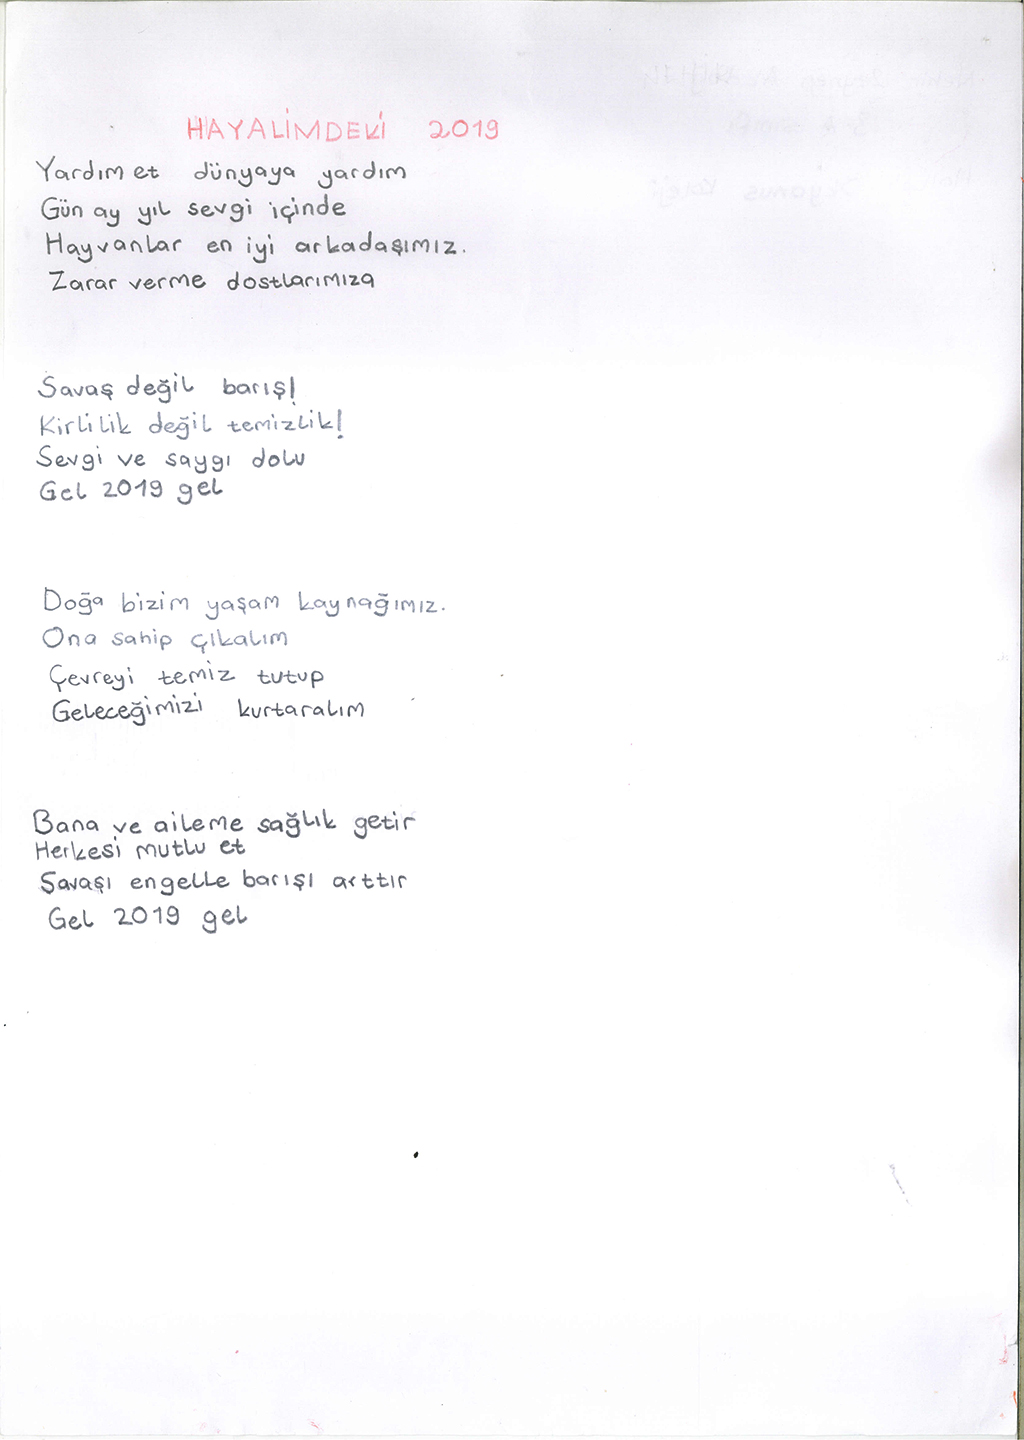 HAYALİMDEKİ 2019
Yardım et dünyaya yardım
Gün ay yıl sevgi içinde
Hayvanlar en iyi arkadaşımız.
Zarar verme dostlarımıza
Savaş değil barış!
Kirlilik değil temizlik!
Sevgi ve saygı dolu
Gel 2019 gel
Doğa bizim yaşam kaynağımız.
Ona sahip çıkalım
Çevreyi temiz tutup
Geleceğimizi kurtaralım
Bana ve aileme sağlık getir
Herkesi mutlu et
Savaşı engelle barışı arttır
Gel 2019 gel